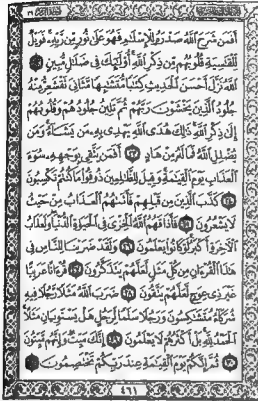 أَفَمَن شَرَحَ ٱللَّهُ صَدْرَهُۥ لِلْإِسْلَٰمِ فَهُوَ عَلَىٰ نُورٍ مِّن رَّبِّهِۦ فَوَيْلٌ
لِّلْقَٰسِيَةِ قُلُوبُهُم مِّن ذِكْرِ ٱللَّهِ أُو۟لَٰٓئِكَ فِى ضَلَٰلٍ مُّبِينٍ ٢٢
ٱللَّهُ نَزَّلَ أَحْسَنَ ٱلْحَدِيثِ كِتَٰبًا مُّتَشَٰبِهًا مَّثَانِىَ تَقْشَعِرُّ مِنْهُ
جُلُودُ ٱلَّذِينَ يَخْشَوْنَ رَبَّهُمْ ثُمَّ تَلِينُ جُلُودُهُمْ وَقُلُوبُهُمْ
إِلَىٰ ذِكْرِ ٱللَّهِ ذَٰلِكَ هُدَى ٱللَّهِ يَهْدِى بِهِۦ مَن يَشَآءُ وَمَن
يُضْلِلِ ٱللَّهُ فَمَا لَهُۥ مِنْ هَادٍ ٢٣ أَفَمَن يَتَّقِى بِوَجْهِهِۦ سُوٓءَ
ٱلْعَذَابِ يَوْمَ ٱلْقِيَٰمَةِ وَقِيلَ لِلظَّٰلِمِينَ ذُوقُوا۟ مَا كُنتُمْ تَكْسِبُونَ
٢٤ كَذَّبَ ٱلَّذِينَ مِن قَبْلِهِمْ فَأَتَىٰهُمُ ٱلْعَذَابُ مِنْ حَيْثُ
لَا يَشْعُرُونَ ٢٥ فَأَذَاقَهُمُ ٱللَّهُ ٱلْخِزْىَ فِى ٱلْحَيَوٰةِ ٱلدُّنْيَا وَلَعَذَابُ
ٱلْءَاخِرَةِ أَكْبَرُ لَوْ كَانُوا۟ يَعْلَمُونَ ٢٦ وَلَقَدْ ضَرَبْنَا لِلنَّاسِ فِى
هَٰذَا ٱلْقُرْءَانِ مِن كُلِّ مَثَلٍ لَّعَلَّهُمْ يَتَذَكَّرُونَ ٢٧ قُرْءَانًا عَرَبِيًّا
غَيْرَ ذِى عِوَجٍ لَّعَلَّهُمْ يَتَّقُونَ ٢٨ ضَرَبَ ٱللَّهُ مَثَلًا رَّجُلًا فِيهِ
شُرَكَآءُ مُتَشَٰكِسُونَ وَرَجُلًا سَلَمًا لِّرَجُلٍ هَلْ يَسْتَوِيَانِ مَثَلًا
ٱلْحَمْدُ لِلَّهِ بَلْ أَكْثَرُهُمْ لَا يَعْلَمُونَ ٢٩ إِنَّكَ مَيِّتٌ وَإِنَّهُم مَّيِّتُونَ
٣٠ ثُمَّ إِنَّكُمْ يَوْمَ ٱلْقِيَٰمَةِ عِندَ رَبِّكُمْ تَخْتَصِمُونَ ٣١
٤٦١